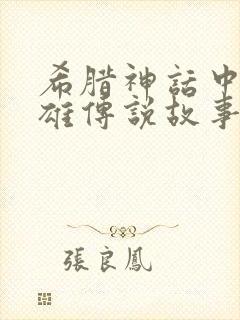 希腊神話中
雄傳說故事
張良鳳